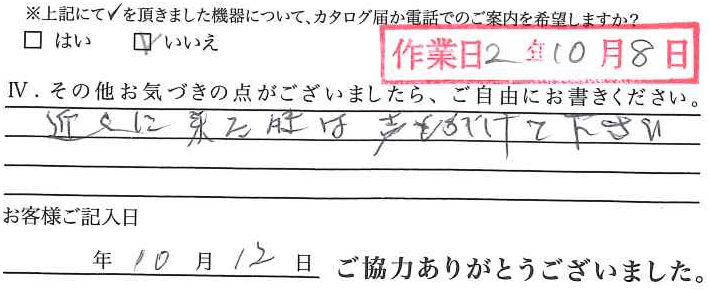 ※上記にて✓を頂きました機器について、カタログ届か電話でのご案内を希望しますか？
□ はい ☑ いいえ
作業日 2年10月8日
Ⅳ．その他お気づきの点がございましたら、ご自由にお書きください。
近くに来た時は声をかけて下さい
お客様ご記入日
年 10 月 12 日 ご協力ありがとうございました。